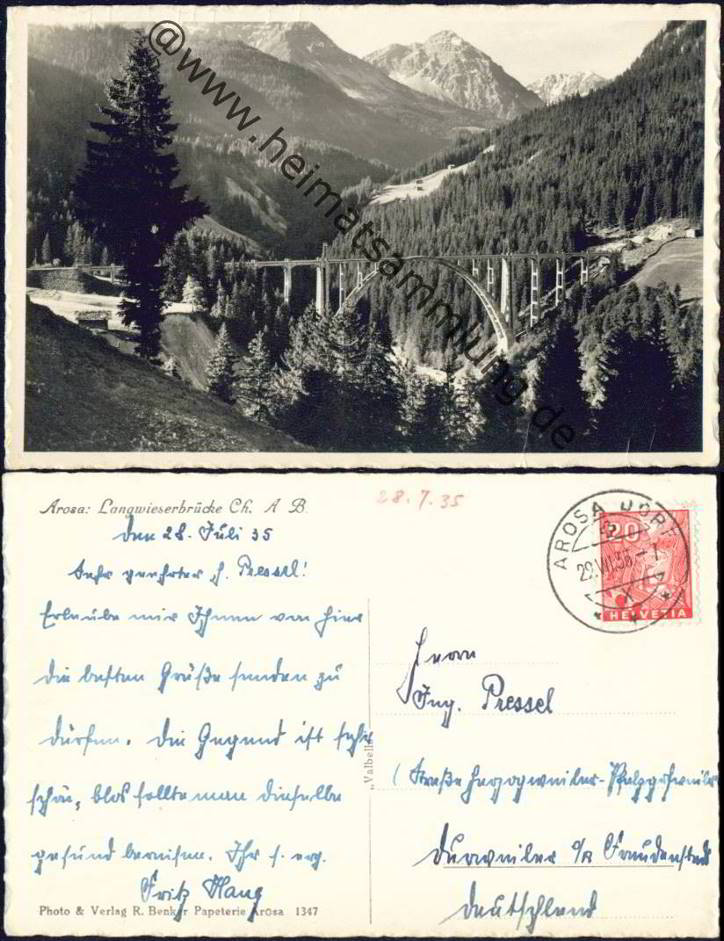 @www.heimatsammlung.de
Arosa: Langwieserbrücke Ch. A B.
28.7.35
Den 28. Juli 35
Sehr geehrter H. Pressel!
Erlaube mir Ihnen von hier
die besten Grüße senden zu
dürfen. Die Gegend ist sehr
schön, blos sollte man dieselbe
gesund bereisen. Ihr s. erg.
Fritz Haug
Photo & Verlag R. Benker Papeterie Arosa 1347
„Valbella“
AROSA DORF
29.VII.35
20
HELVETIA
Herrn
Ing. Pressel
(Straße Herzogsweiler-Pfalzgrafenweiler
Durrweiler b/ Freudenstadt
Deutschland